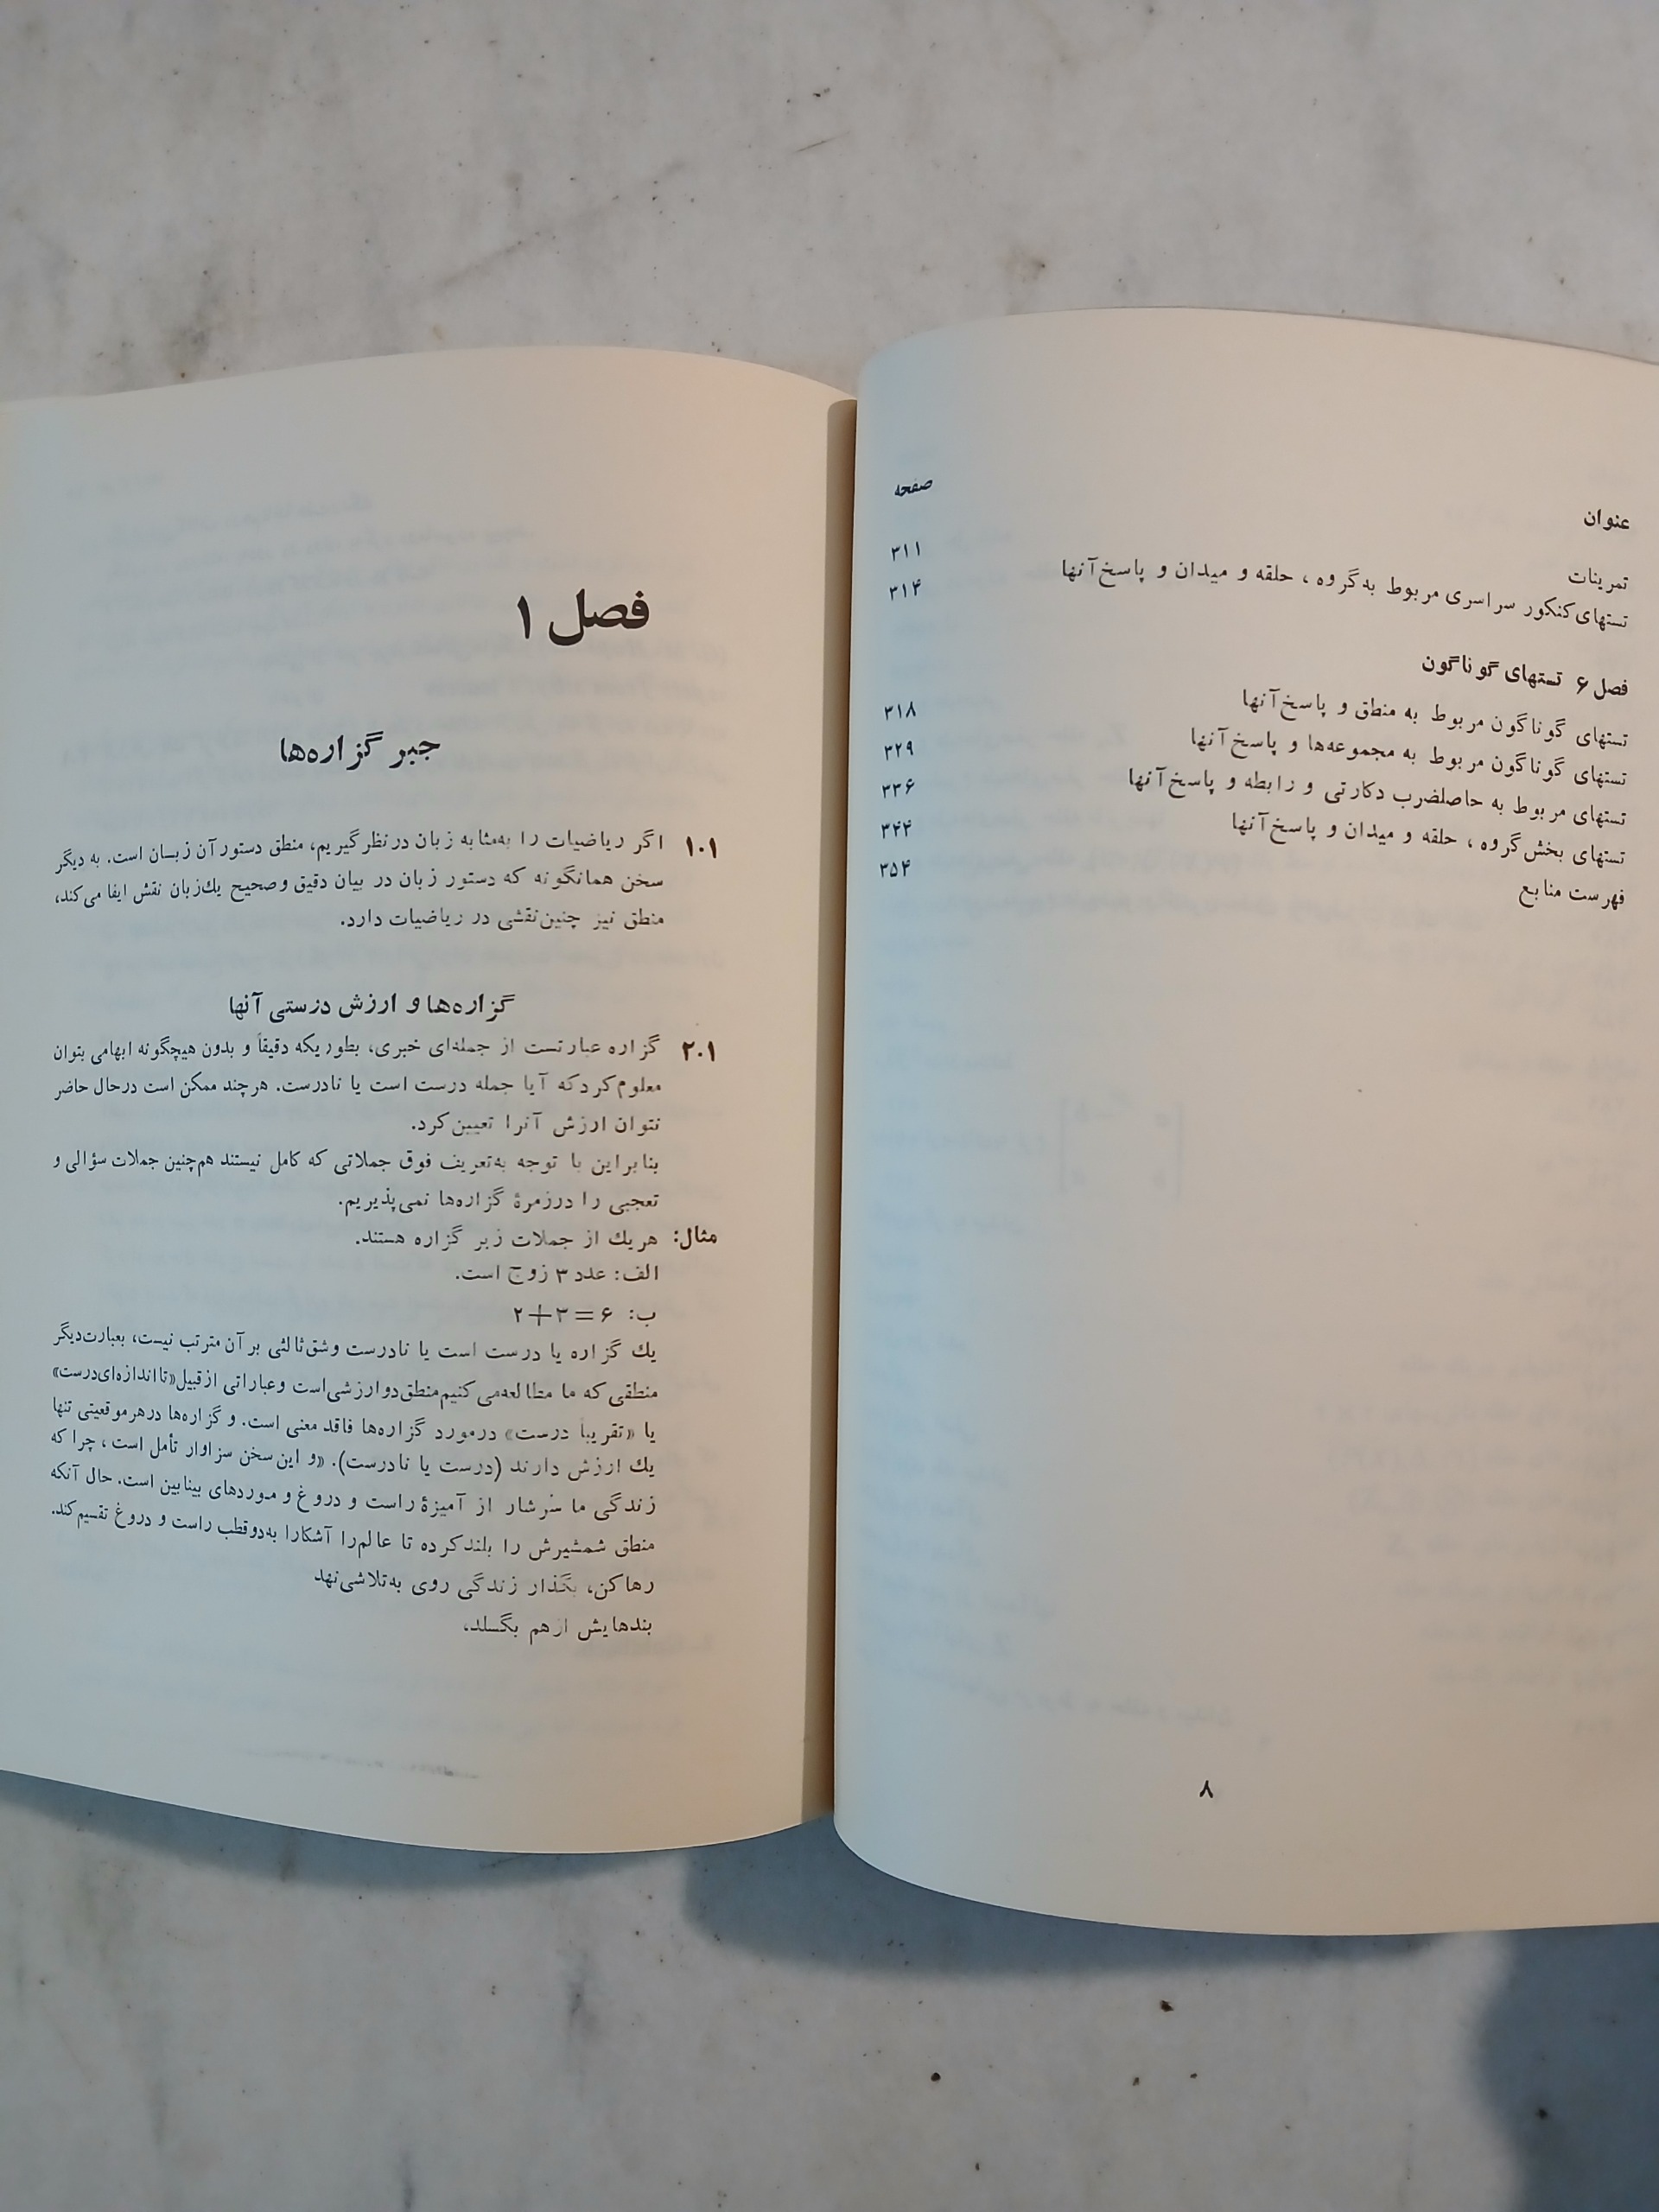 عنوان صفحه
تمرینات ۳۱۱
تستهای کنکور سراسری مربوط به گروه ، حلقه و میدان و پاسخ آنها ۳۱۴
فصل ۶ تستهای گوناگون
تستهای گوناگون مربوط به منطق و پاسخ آنها ۳۱۸
تستهای گوناگون مربوط به مجموعه‌ها و پاسخ آنها ۳۲۹
تستهای مربوط به حاصلضرب دکارتی و رابطه و پاسخ آنها ۳۳۶
تستهای بخش گروه ، حلقه و میدان و پاسخ آنها ۳۴۴
فهرست منابع ۳۵۴
۸
فصل ۱
جبر گزاره‌ها
۱.۱ اگر ریاضیات را به‌مثابه زبان در نظر گیریم، منطق دستور آن زبسان است. به دیگر
سخن همانگونه که دستور زبان در بیان دقیق و صحیح یك زبان نقش ایفا می‌کند،
منطق نیز چنین نقشی در ریاضیات دارد.
گزاره‌ها و ارزش درستی آنها
۲.۱ گزاره عبارتست از جمله‌ای خبری، بطوریکه دقیقاً و بدون هیچگونه ابهامی بتوان
معلوم کرد که آیا جمله درست است یا نادرست. هرچند ممکن است درحال حاضر
نتوان ارزش آنرا تعیین کرد.
بنابراین با توجه به‌تعریف فوق جملاتی که کامل نیستند هم‌چنین جملات سؤالی و
تعجبی را درزمرهٔ گزاره‌ها نمی‌پذیریم.
مثال: هریك از جملات زیر گزاره هستند.
الف: عدد ۳ زوج است.
ب: ۲+۳=۶
یك گزاره یا درست است یا نادرست وشق ثالثی بر آن مترتب نیست، بعبارت‌دیگر
منطقی که ما مطالعه‌می کنیم منطق دوارزشی‌است وعباراتی ازقبیل «تااندازه‌ای‌درست»
یا «تقریباً درست» درمورد گزاره‌ها فاقد معنی است. و گزاره‌ها درهرموقعیتی تنها
یك ارزش دارند (درست یا نادرست). «و این سخن سزاوار تأمل است ، چرا که
زندگی ما سرشار از آمیزهٔ راست و دروغ و موردهای بینابین است. حال آنکه
منطق شمشیرش را بلندکرده تا عالم‌را آشکارا به‌دوقطب راست و دروغ تقسیم‌کند.
رهاکن، بگذار زندگی روی به‌تلاشی‌نهد
بندهایش ازهم بگسلد،